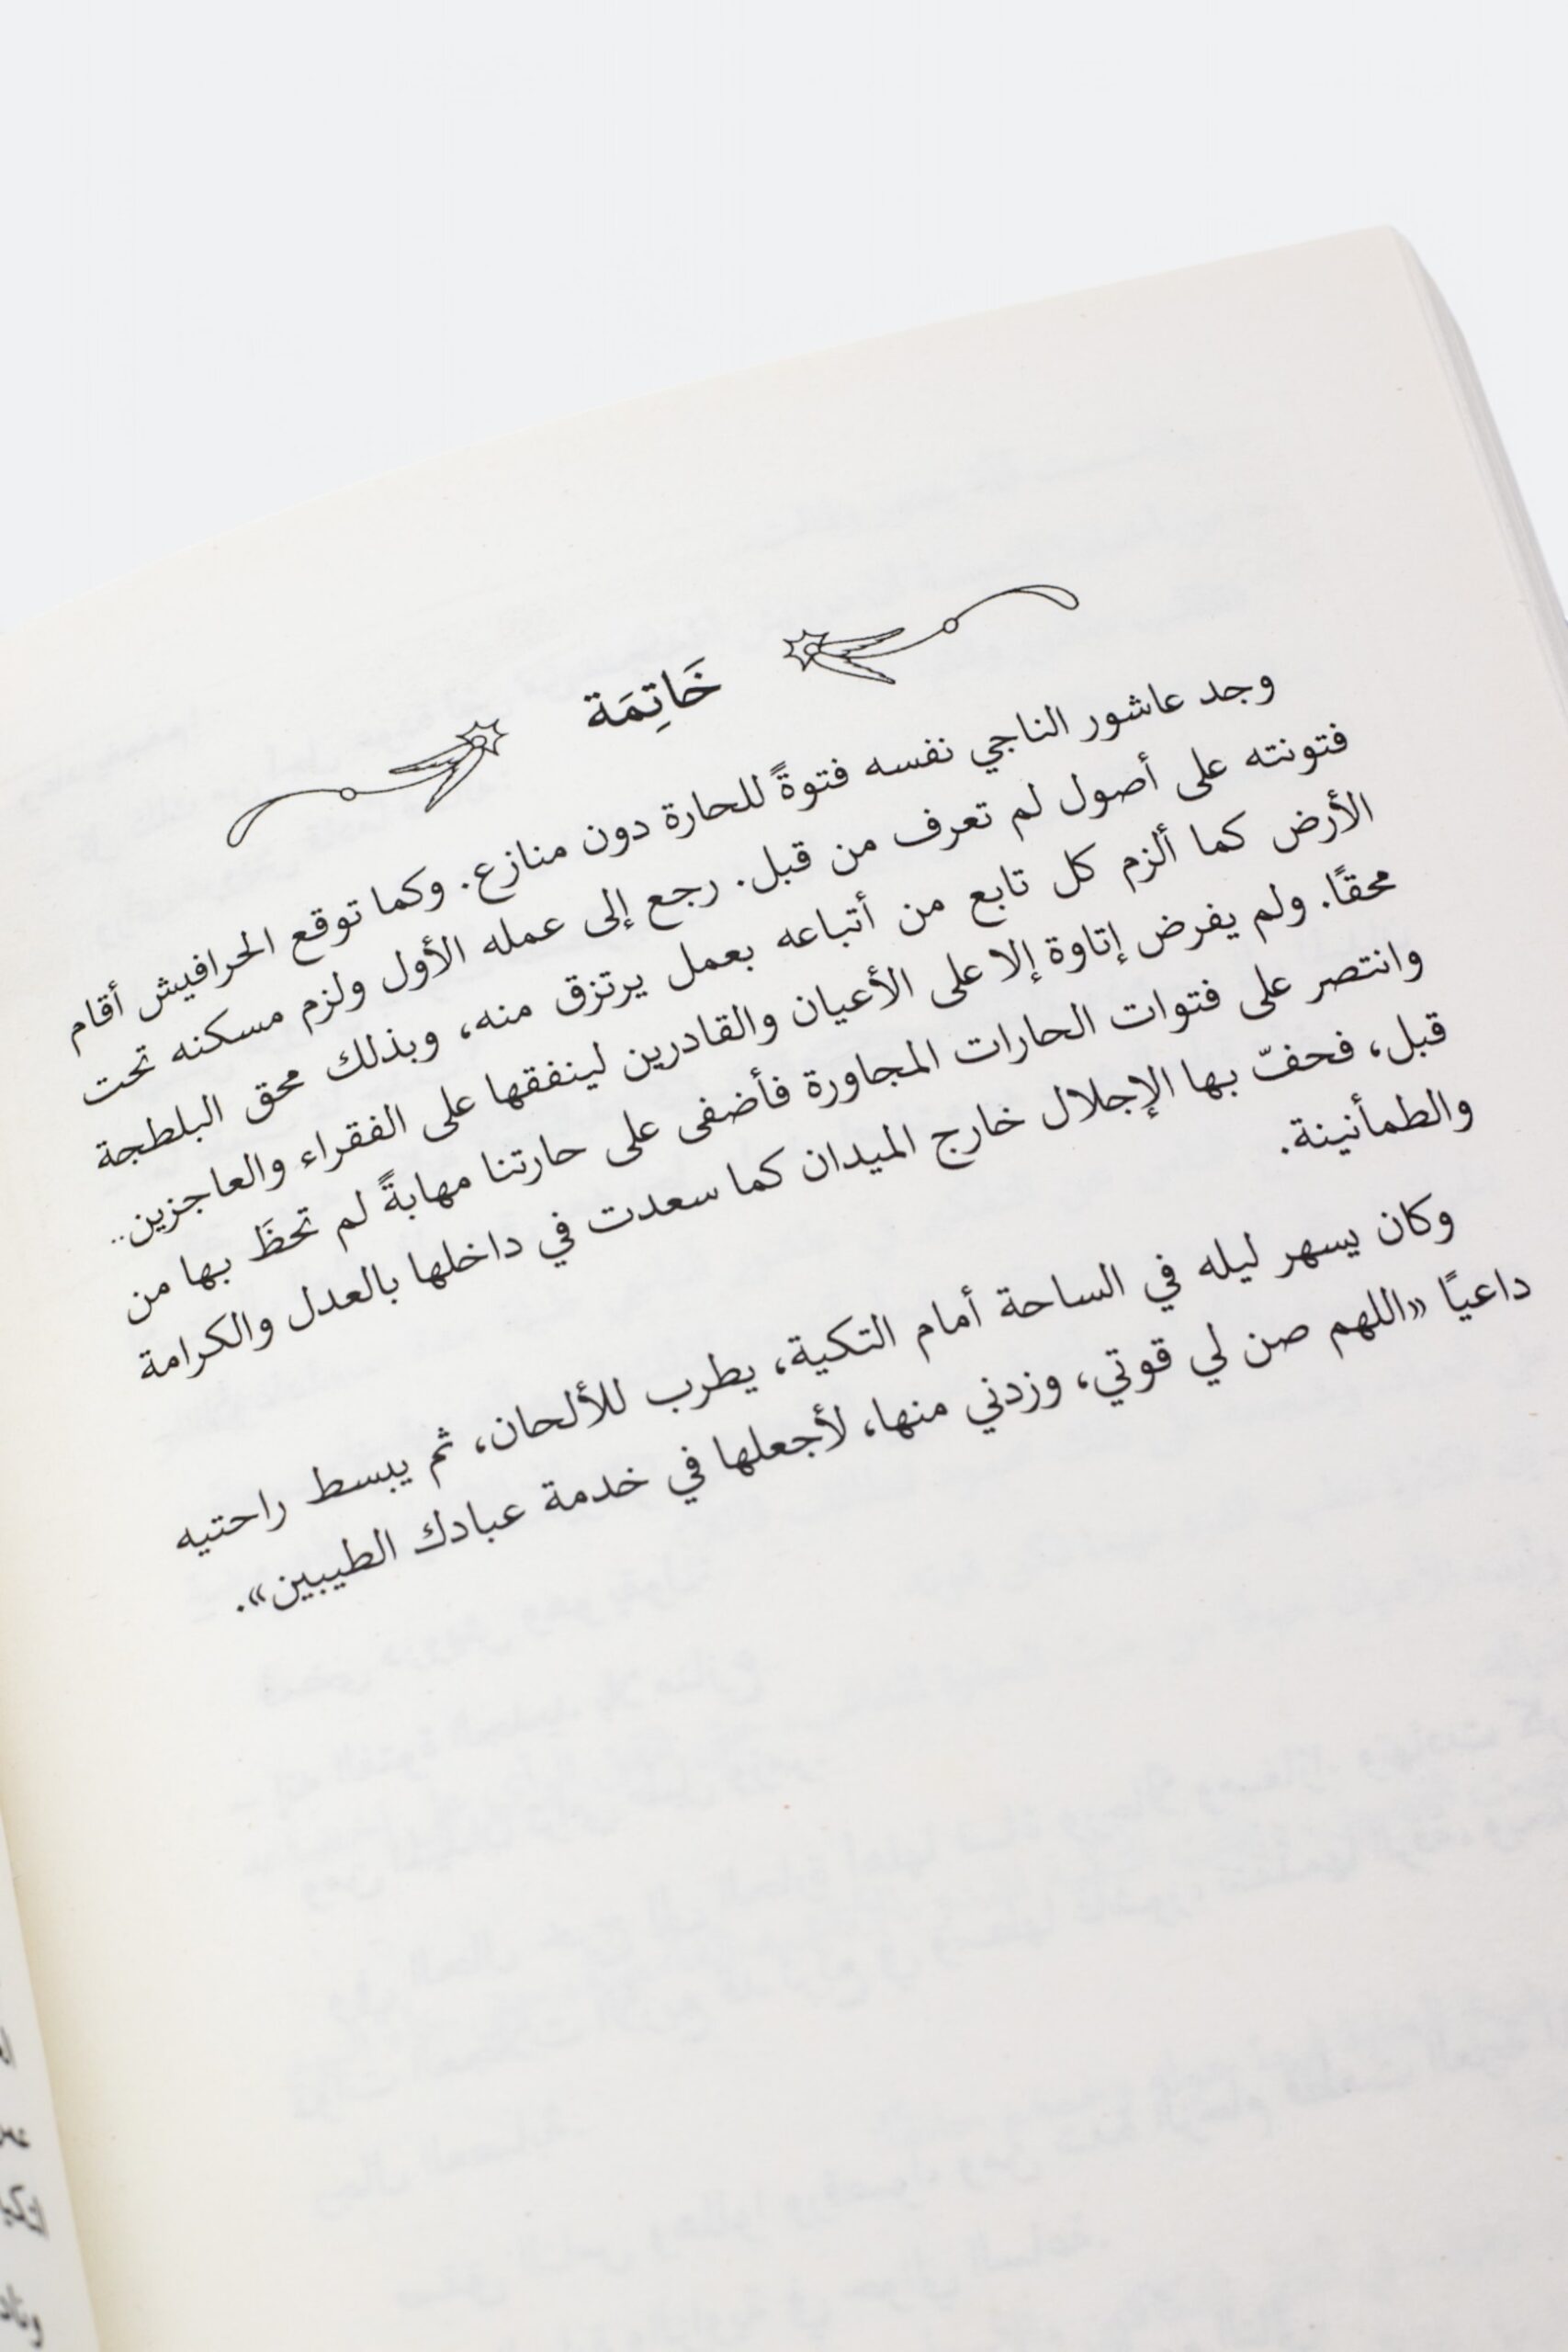 خَاتِمَة
وجد عاشور الناجي نفسه فتوةً للحارة دون منازع. وكما توقع الحرافيش أقام
فتونته على أصول لم تعرف من قبل. رجع إلى عمله الأول ولزم مسكنه تحت
الأرض كما ألزم كل تابع من أتباعه بعمل يرتزق منه، وبذلك محق البلطجة
محقًا. ولم يفرض إتاوة إلا على الأعيان والقادرين لينفقها على الفقراء والعاجزين..
وانتصر على فتوات الحارات المجاورة فأضفى على حارتنا مهابةً لم تحظَ بها من
قبل، فحفّ بها الإجلال خارج الميدان كما سعدت في داخلها بالعدل والكرامة
والطمأنينة.
وكان يسهر ليله في الساحة أمام التكية، يطرب للألحان، ثم يبسط راحتيه
داعيًا «اللهم صن لي قوتي، وزدني منها، لأجعلها في خدمة عبادك الطيبين».